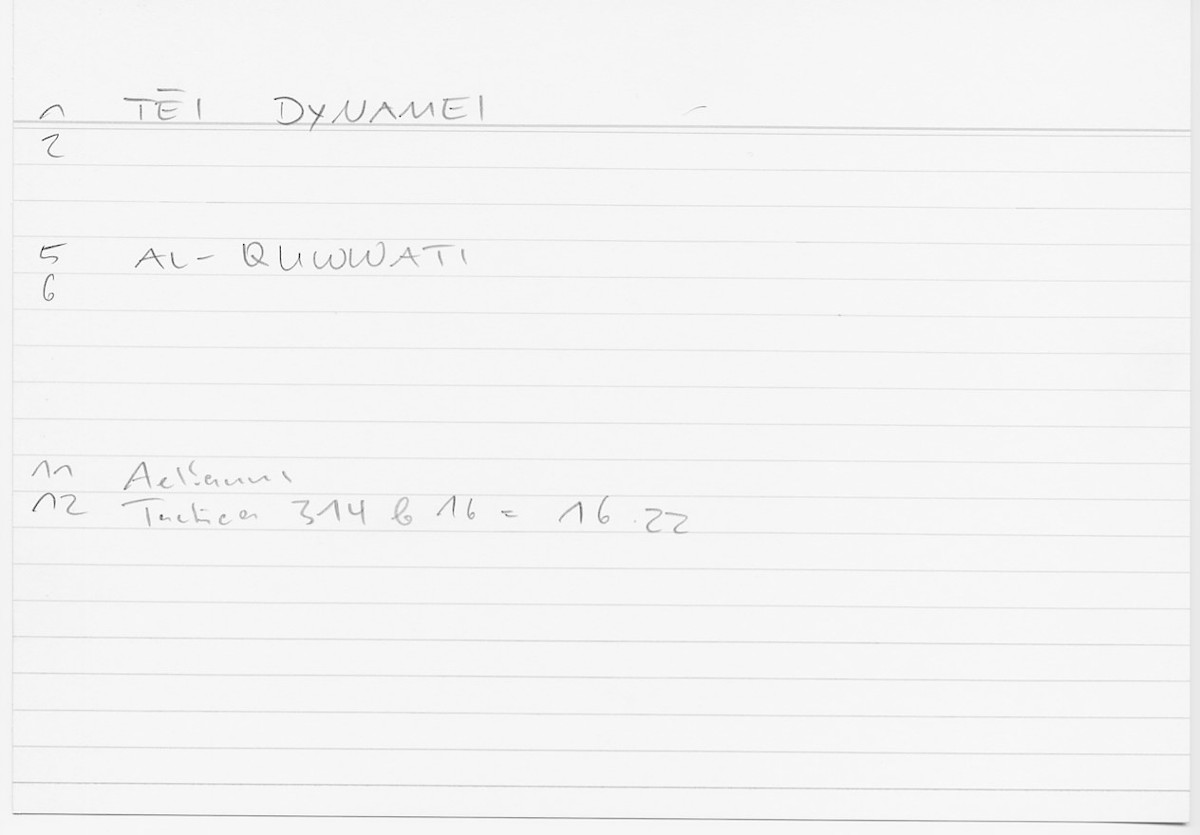 1 TĒI DYNAMEI
2
5 AL-QUWWATI
6
11 Aelianus
12 Tactica 314 b 16 = 16.22